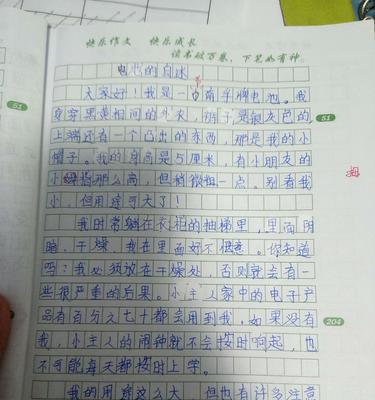 快乐作文 快乐成长
读书破万卷，下笔如有神。
电池的自述
节
大家好！我是一南孚牌电池。我
穿穿黑黄相间的外衣，裤子是银灰色的
51
51
上端还有一个凸出的东西，那是我的小
帽子。我的身高是5厘米，有小朋友的
小拇指那么高，但稍微粗一点。别看我
拇
小，但用途可大了！
我时常躺在衣柜的抽梯里，里面阴
暗、干燥，我在里面好不惬意。你知道
吗？我必须放在干燥处，否则就会有一
些很严重的后果。小主人家中的电子产
品有百分之七十都会用到我，如果没有
204
我，小主人的闹钟就不会按时响起，也
不可能每天都按时上学。
我的用途这么大，但也有许多注意